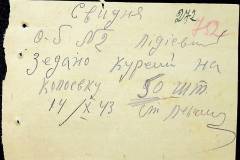 Свидня 272 702
О-б №2 Підієвий
Зедано курений на
Колоевку 50 шт.
14/X 43